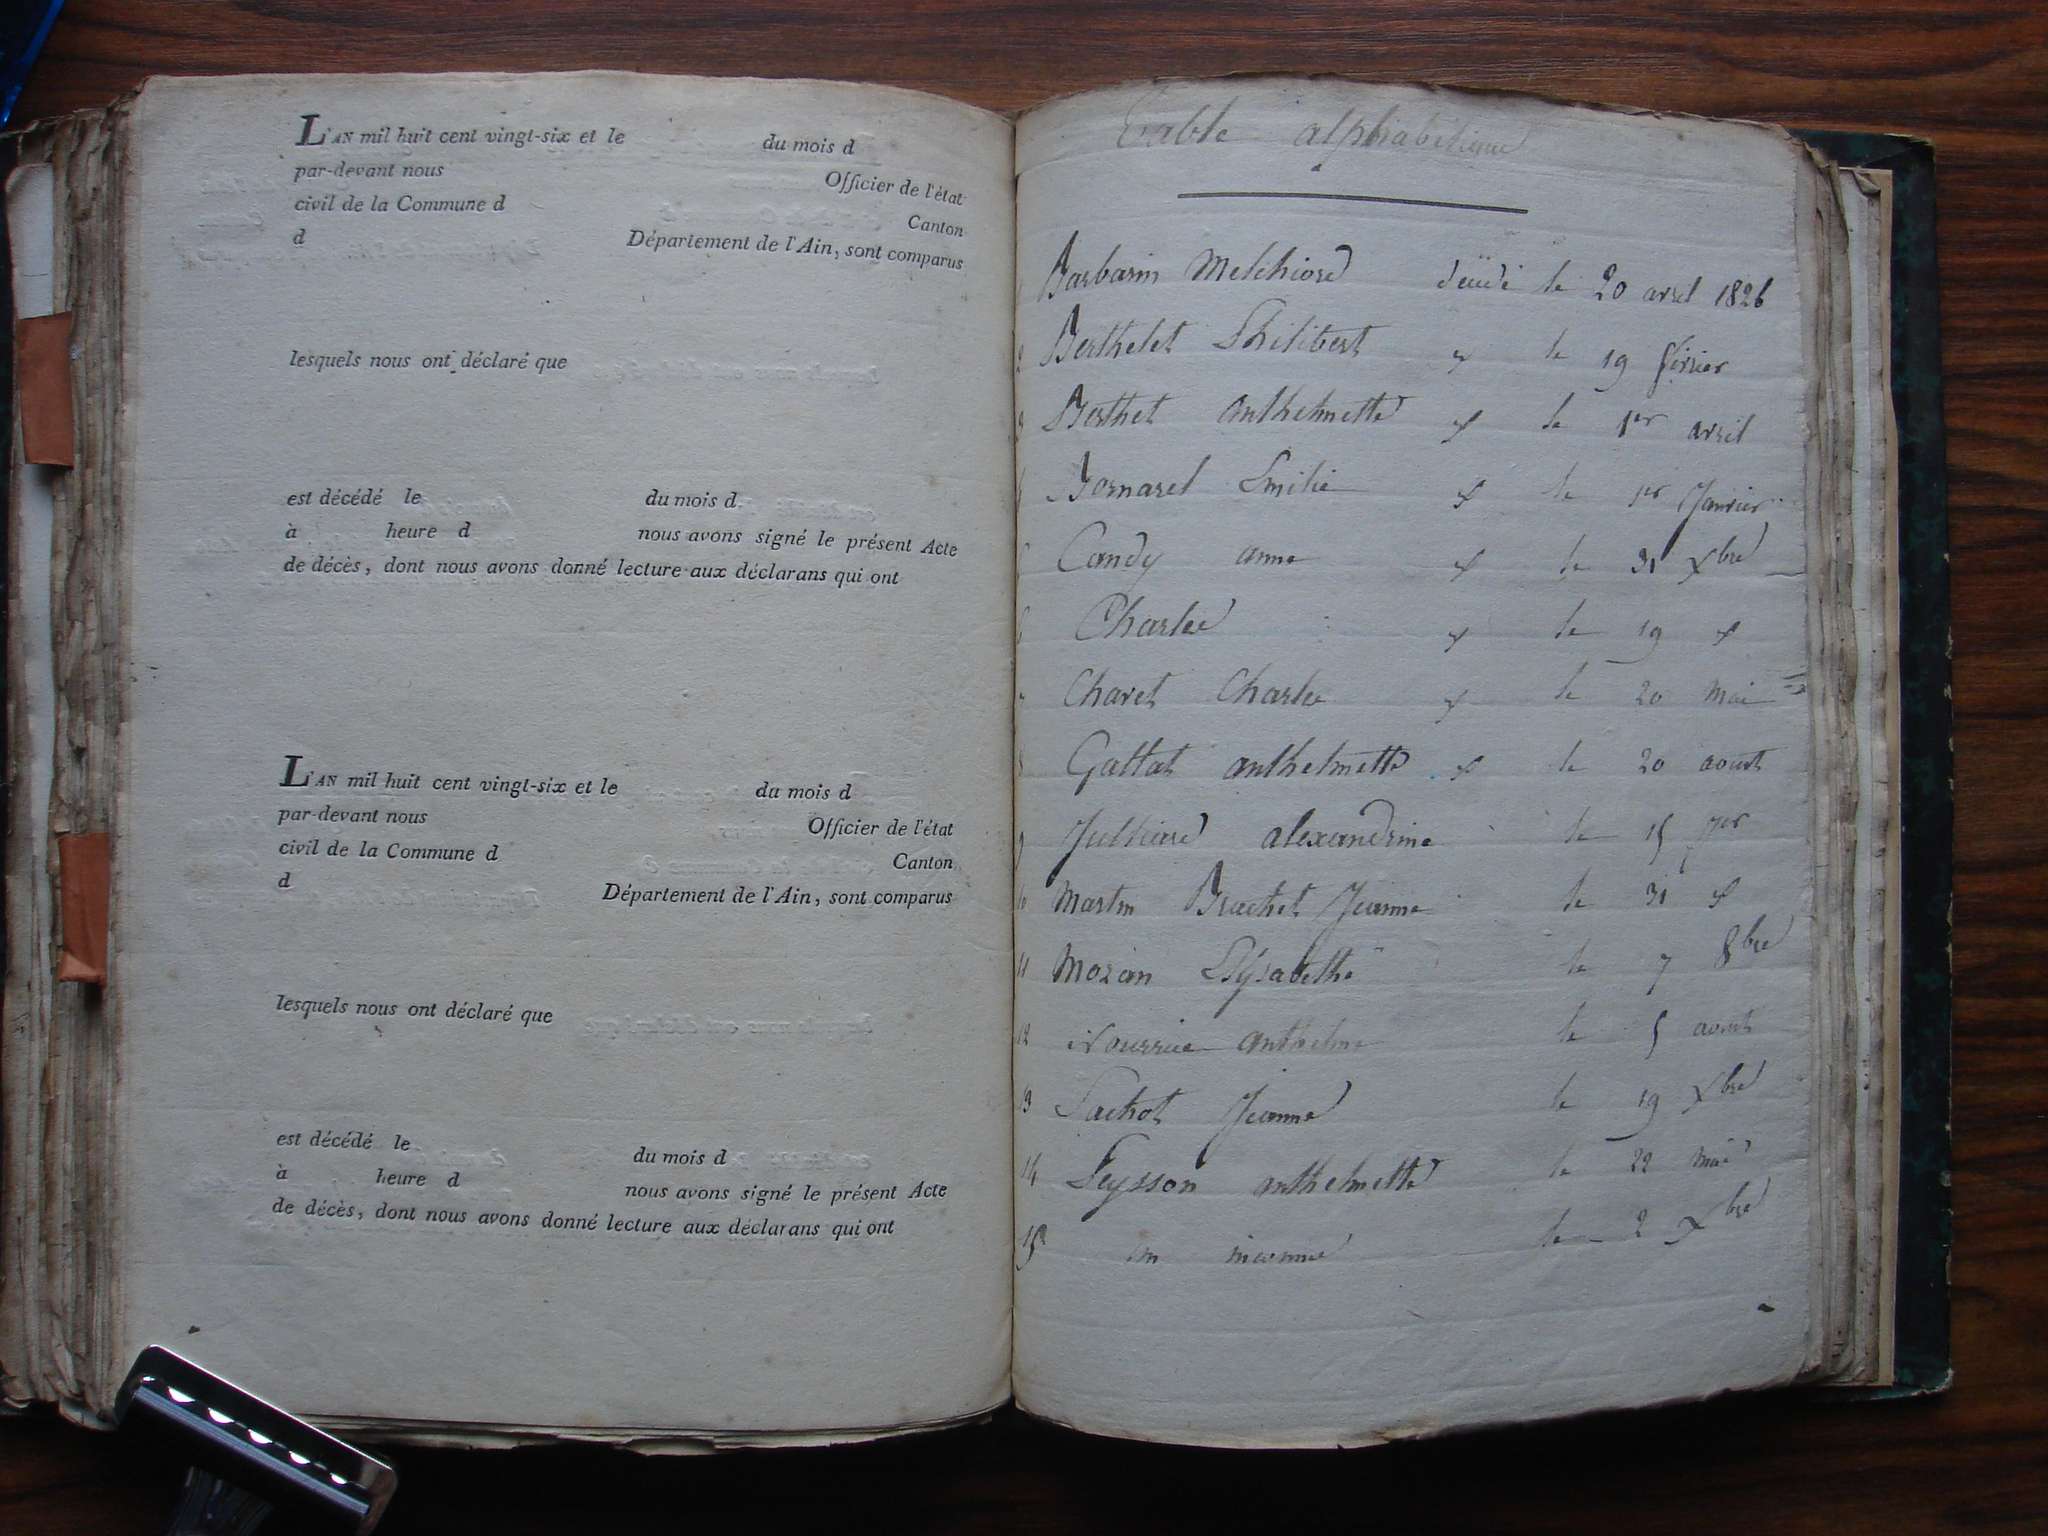 L'AN mil huit cent vingt-six et le du mois d
par-devant nous Officier de l'état
civil de la Commune d Canton
d Département de l'Ain, sont comparus
lesquels nous ont déclaré que
est décédé le du mois d
à heure d nous avons signé le présent Acte
de décès, dont nous avons donné lecture aux déclarans qui ont
L'AN mil huit cent vingt-six et le du mois d
par-devant nous Officier de l'état
civil de la Commune d Canton
d Département de l'Ain, sont comparus
lesquels nous ont déclaré que
est décédé le du mois d
à heure d nous avons signé le présent Acte
de décès, dont nous avons donné lecture aux déclarans qui ont
Table alphabétique
Barbarin Melchiord le 20 avril 1826
2 Berthelet Philibert le 19 février
3 Berthet anthelmette le 1er avril
4 Bornarel Emilie le 1er Janvier
5 Candy anne le 31 Xbre
6 Charlee le 19
7 Charet Charle le 20 mai
8 Gallat anthelmette le 20 aoust
9 Julliard alexandrine le 15 7er
10 Martin Brachet Jeanne le 31
11 Moran Elysabethe le 7 8bre
12 Nourrice anthelme le 5 aoust
13 Pachot Jeanne le 19 Xbre
14 Peysson anthelmette le 22 mai
15 un inconnu le 2 Xbre